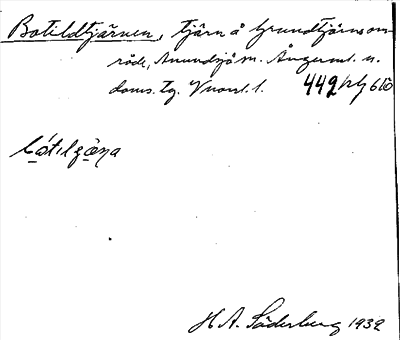 Botildtjärnen, tjärn å Grundtjärns om-
råde, Anundsjö sn. Ångerml. n.
doms. tg. Vuorel. 442 hlj 6 60
bótilȼäṇa
H A. Söderberg 1932